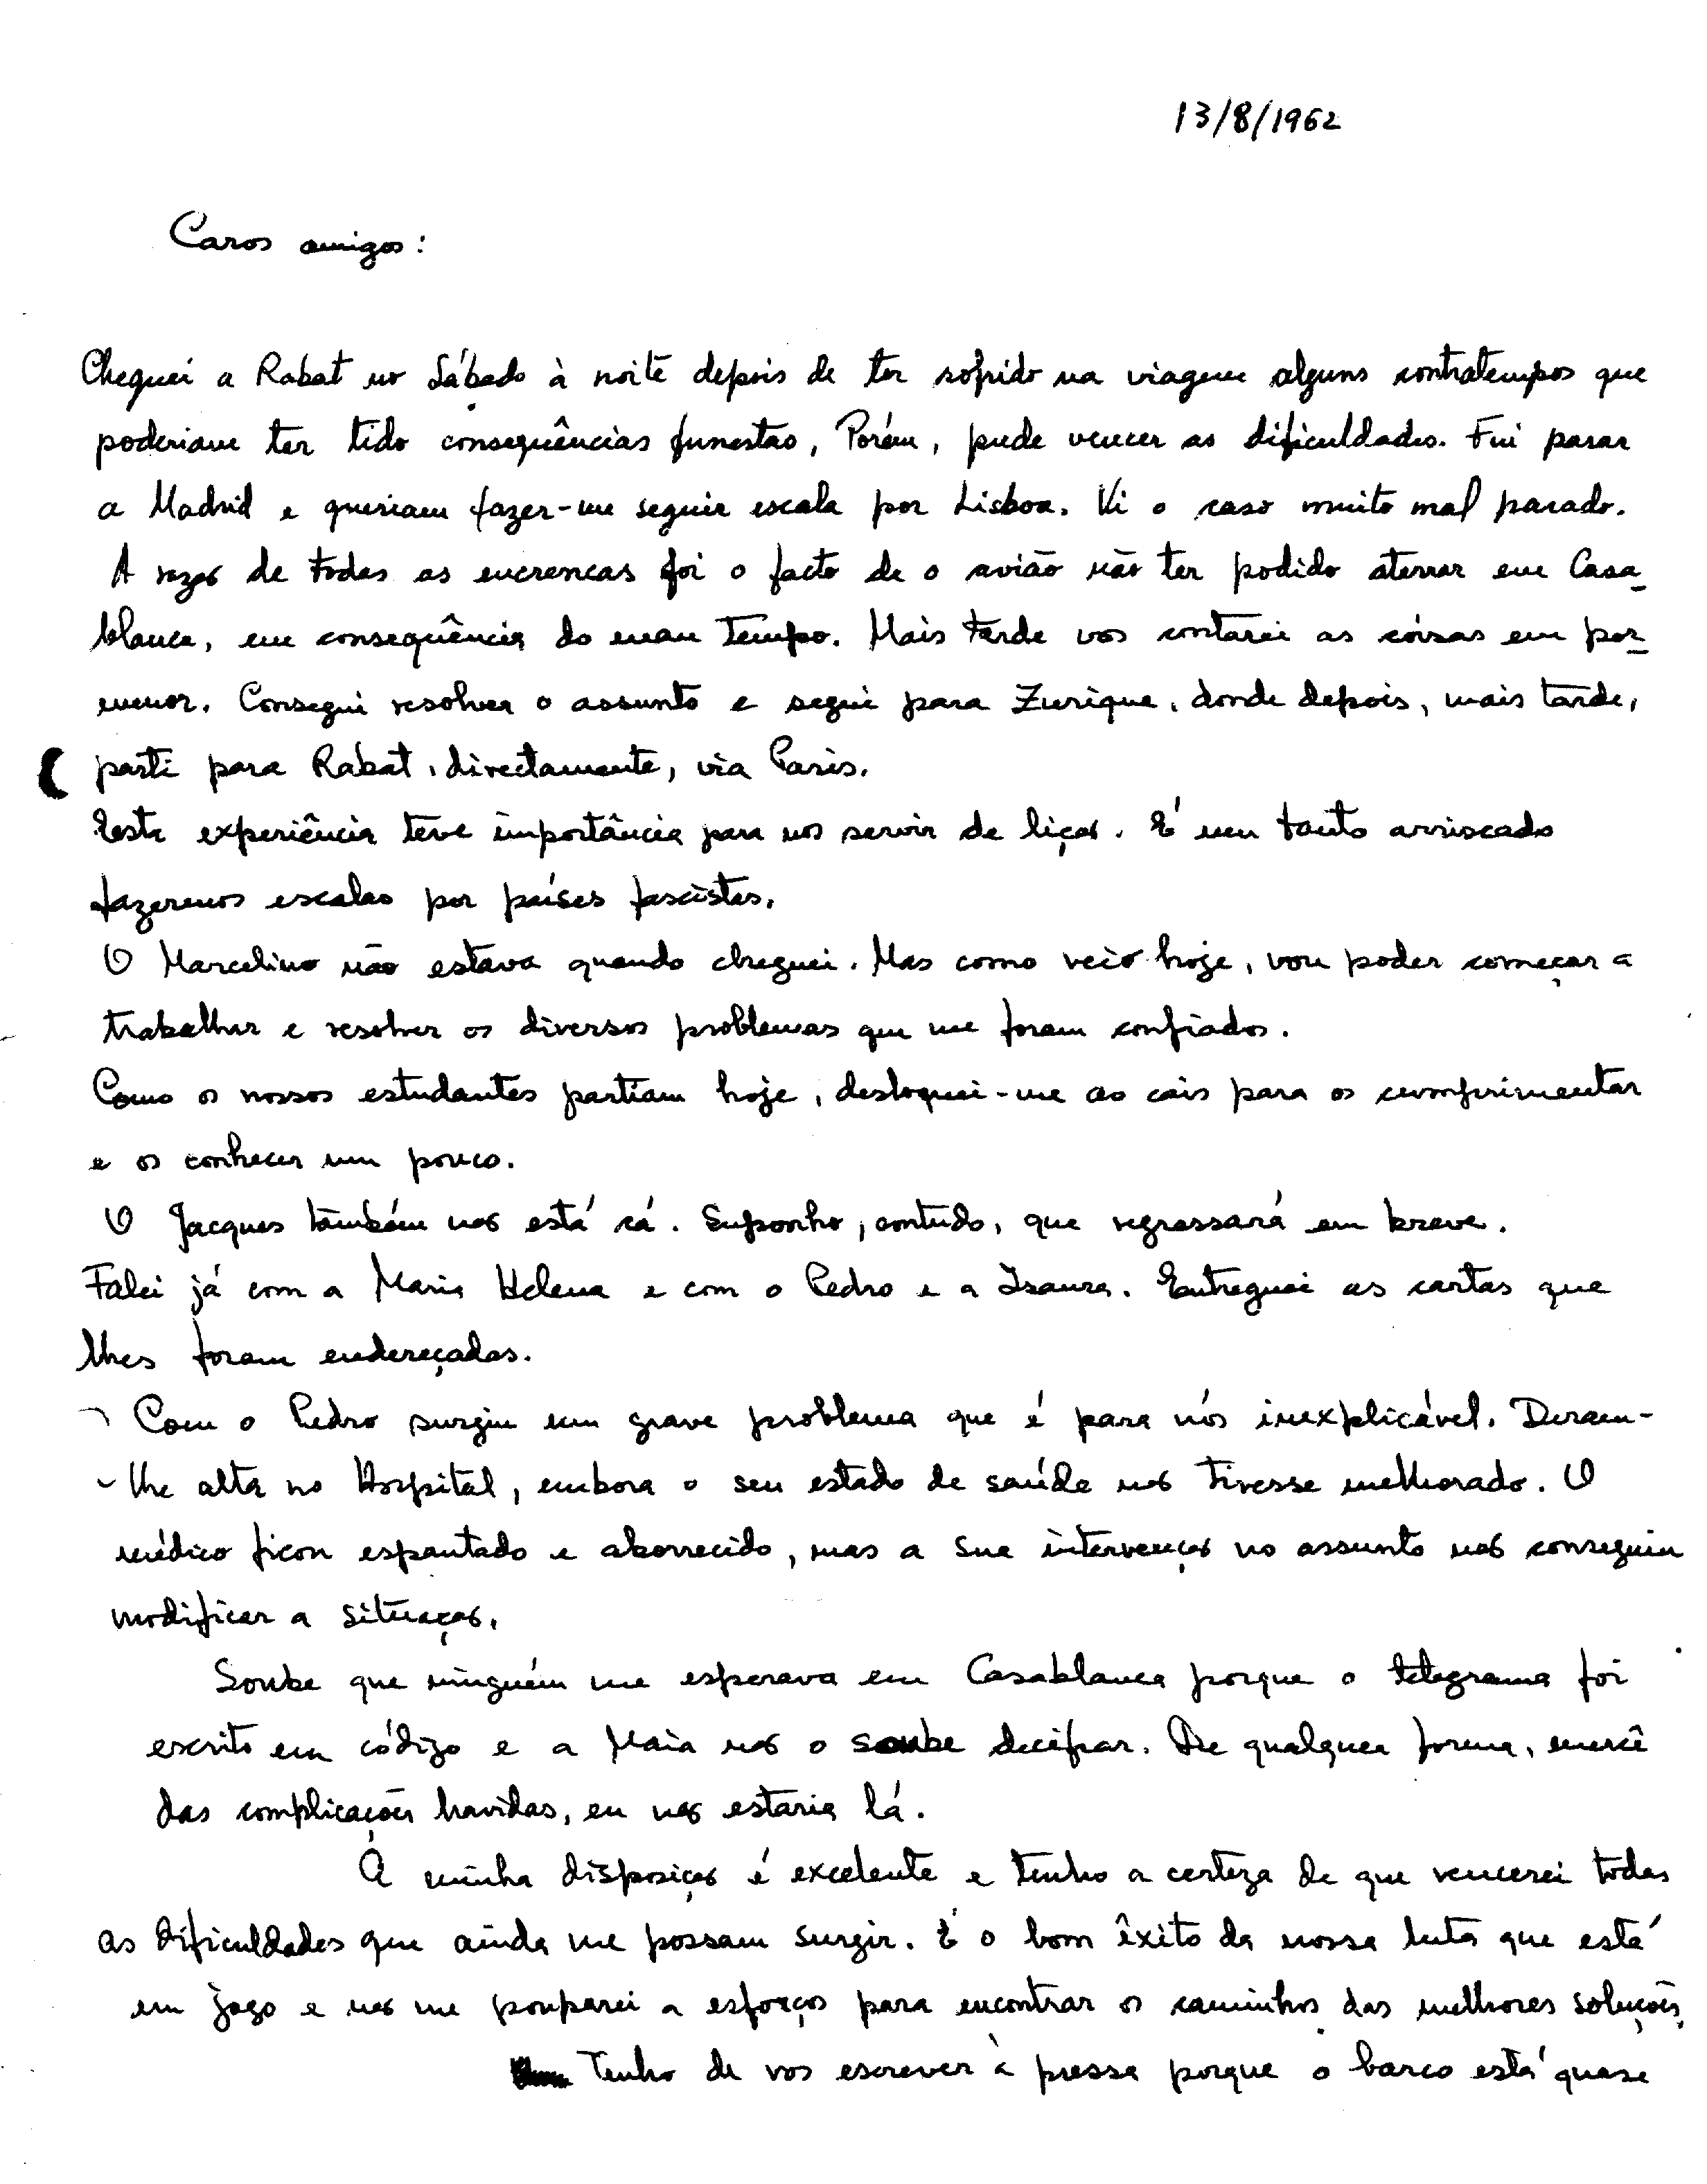 13/8/1962
Caros amigos:
Cheguei a Rabat no Sábado à noite depois de ter sofrido na viagem alguns contratempos que
poderiam ter tido consequências funestas, Porém, pude vencer as dificuldades. Fui parar
a Madrid e queriam fazer-me seguir escala por Lisboa. Vi o caso muito mal parado.
A razão de todas as encrencas foi o facto de o avião não ter podido aterrar em Casa-
blanca, em consequência do mau tempo. Mais tarde vos contarei as coisas em por-
menor. Consegui resolver o assunto e segui para Zurique, donde depois, mais tarde,
parti para Rabat, directamente, via Paris.
Esta experiência teve importância para nos servir de lição. É um tanto arriscado
fazermos escalas por países fascistas.
O Marcelino não estava quando cheguei. Mas como veio hoje, vou poder começar a
trabalhar e resolver os diversos problemas que me foram confiados.
Como os nossos estudantes partiam hoje, desloquei-me ao cais para os cumprimentar
e os conhecer um pouco.
O Jacques também não está cá. Suponho, contudo, que regressará em breve.
Falei já com a Maria Helena e com o Pedro e a Isaura. Entreguei as cartas que
lhes foram endereçadas.
Com o Pedro surgiu um grave problema que é para nós inexplicável. Deram-
-lhe alta no Hospital, embora o seu estado de saúde não tivesse melhorado. O
médico ficou espantado e aborrecido, mas a sua intervenção no assunto não conseguiu
modificar a situação.
Soube que ninguém me esperava em Casablanca porque o telegrama foi
escrito em código e a Maia não o soube decifrar. De qualquer forma, mercê
das complicações havidas, eu não estaria lá.
A minha disposição é excelente e tenho a certeza de que vencerei todas
as dificuldades que ainda me possam surgir. É o bom êxito da nossa luta que está
em jogo e não me pouparei a esforços para encontrar os caminhos das melhores soluções.
Tenho de vos escrever à pressa porque o barco está quase